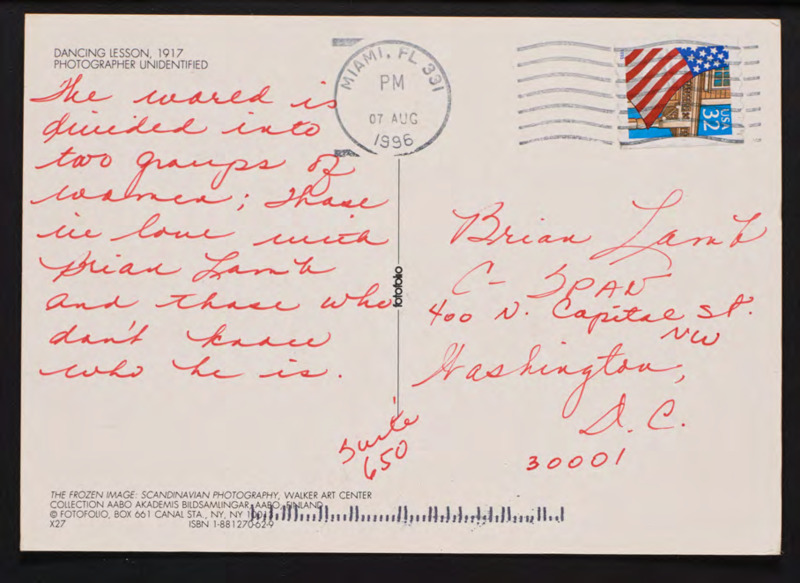 DANCING LESSON, 1917
PHOTOGRAPHER UNIDENTIFIED
The world is
divided into
two groups of
women; those
in love with
Brian Lamb
and those who
don't know
who he is.
MIAMI, FL 331
PM
07 AUG
1996
USA
32
fotofolio
Brian Lamb
C-SPAN
400 N. Capital St.
NW
Washington,
D.C.
30001
Suite
650
THE FROZEN IMAGE: SCANDINAVIAN PHOTOGRAPHY, WALKER ART CENTER
COLLECTION AABO AKADEMIS BILDSAMLINGAR, AABO, FINLAND
© FOTOFOLIO, BOX 661 CANAL STA., NY, NY
X27 ISBN 1-881270-62-9